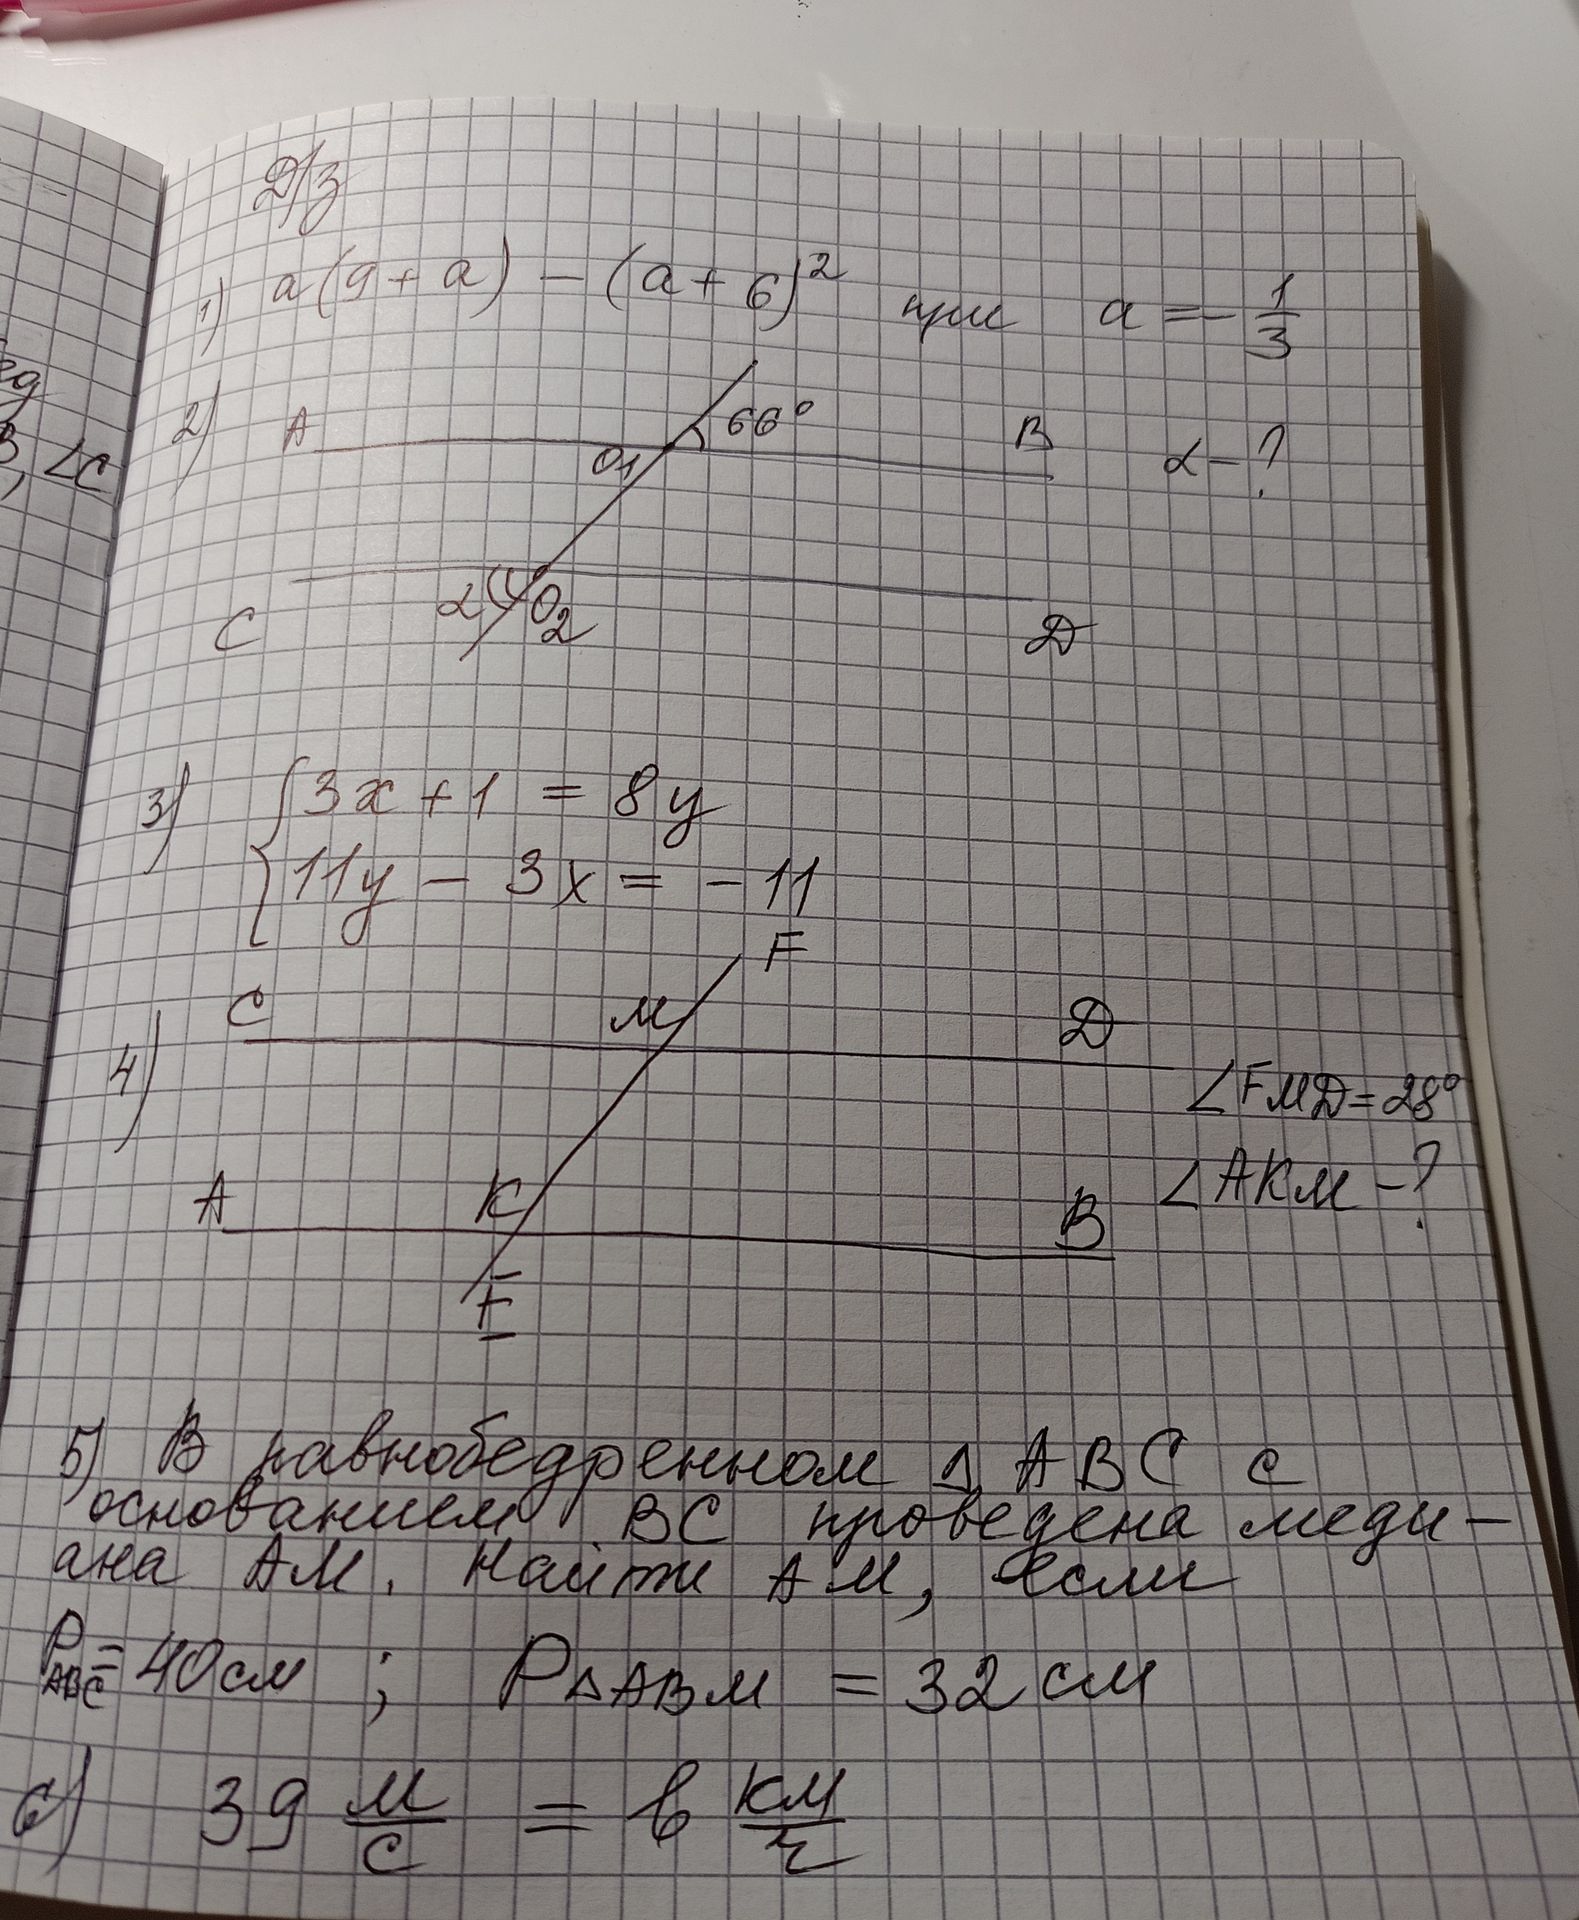 Д/з
1) a(9+a) - (a+6)² при a = - 1/3
2) A O₁ 66° B α - ?
C α O₂ D
3) { 3x + 1 = 8y
11y - 3x = - 11
F
4) C M D
∠FMD = 28°
A K B ∠AKM - ?
F
5) В равнобедренном △ ABC с
основанием BC проведена меди-
ана AM. Найти AM, если
P ABC = 40 см ; P△ABM = 32 см
6) 39 м/с = в км/ч
ед
B, ∠C